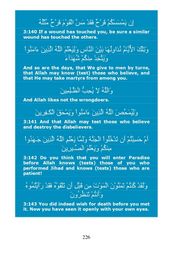 إِن يَمْسَسْكُمْ قَرْحٌ فَقَدْ مَسَّ الْقَوْمَ قَرْحٌ مِّثْلُهُ
3:140 If a wound has touched you, be sure a similar
wound has touched the others.
وَتِلْكَ الْأَيَّامُ نُدَاوِلُهَا بَيْنَ النَّاسِ وَلِيَعْلَمَ اللَّهُ الَّذِينَ ءَامَنُوا
وَيَتَّخِذَ مِنكُمْ شُهَدَاءَ
And so are the days, that We give to men by turns,
that Allah may know (test) those who believe, and
that He may take martyrs from among you.
وَاللَّهُ لَا يُحِبُّ الظَّالِمِينَ
And Allah likes not the wrongdoers.
وَلِيُمَحِّصَ اللَّهُ الَّذِينَ ءَامَنُوا وَيَمْحَقَ الْكَافِرِينَ
3:141 And that Allah may test those who believe
and destroy the disbelievers.
أَمْ حَسِبْتُمْ أَن تَدْخُلُوا الْجَنَّةَ وَلَمَّا يَعْلَمِ اللَّهُ الَّذِينَ جَاهَدُوا
مِنكُمْ وَيَعْلَمَ الصَّابِرِينَ
3:142 Do you think that you will enter Paradise
before Allah knows (tests) those of you who
performed Jihad and knows (tests) those who are
patient!
وَلَقَدْ كُنتُمْ تَمَنَّوْنَ الْمَوْتَ مِن قَبْلِ أَن تَلْقَوْهُ فَقَدْ رَأَيْتُمُوهُ
وَأَنتُمْ تَنظُرُونَ
3:143 You did indeed wish for death before you met
it. Now you have seen it openly with your own eyes.
226